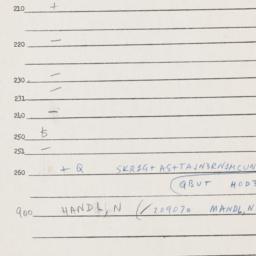 210 +
220 —
230 —
231 —
240 —
250 5
251 —
260 + Q SKR1G+AS+TAJN3RN1MCUN
(QBUT HOD3
900 HANDL, N (/209070 MANDL, N